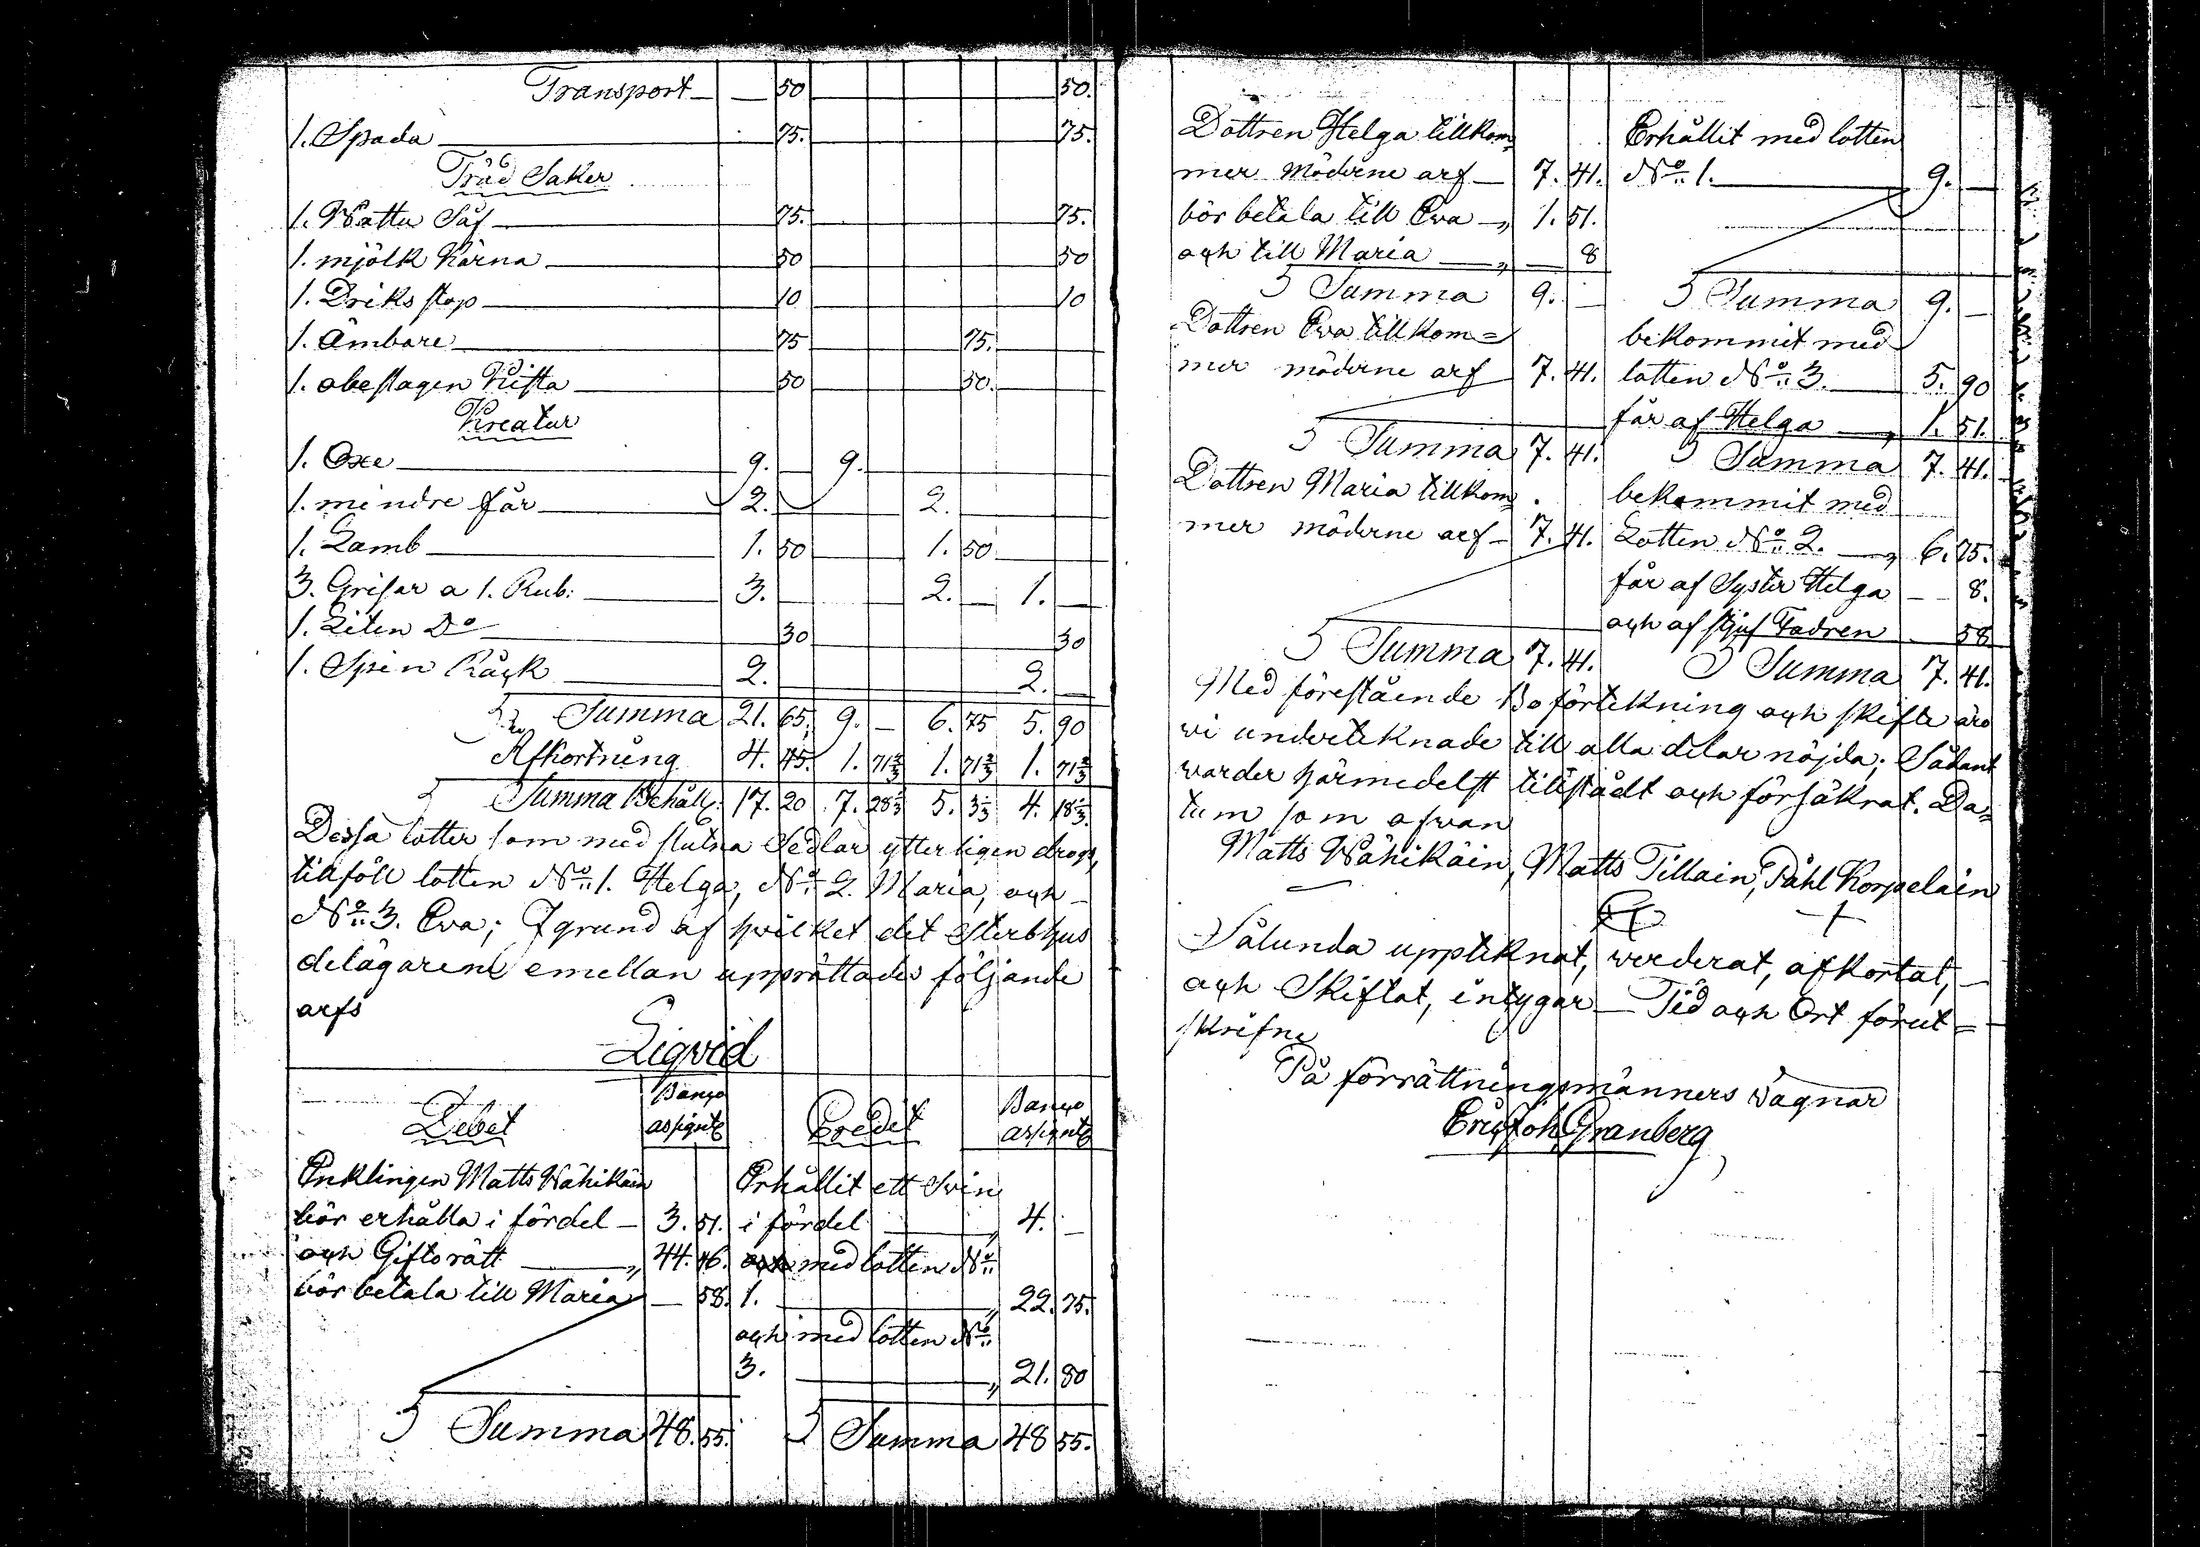 Transport — 50 50.
1. Spada 75. 75.
Träd Saker
1. Wattu Såf 75. 75.
1. mjölk Kärna 50 50
1. Driks stop 10 10
1. Ämbare 75 75.
1. obeslagen Kista 50 50.
Kreatur
1. Oxe 9. — 9. —
1. mindre får 2. — 2.
1. Lamb 1. 50 1. 50
3. Grisar a 1. Rub: 3. — 2. — 1. —
1. Liten Do 30 30
1. Spin Råck 2. 2. —
Summa 21. 65. 9. — 6. 75 5. 90
Afkortning 4. 45. 1. 71⅔ 1. 71⅔ 1. 71⅔
Summa Behåll. 17. 20 7. 28⅓ 5. 3⅓ 4. 18⅓
Dessa lotter som med slutna Sedlar ytterligen drogs,
tillföll lotten No 1. Helga, No 2. Maria, och
No 3. Eva; I grund af hvilket det Sterbhus
delägarene emellan upprättades följande
arfs
Liqvid
Debet Banco assignt Credit Banco assignt
Enklingen Matts Wähikäin Erhållit ett Svin
bör erhålla i fördel — 3. 51. i fördel 4. —
och Giftorätt 44. 46. och med lotten No
bör betala till Maria — 58. 1. 22. 75.
och med lotten No
3. 21. 80
Summa 48. 55. Summa 48 55.
Dottren Helga tillkom Erhållit med lotten
mer möderne arf — 7. 41. No 1. 9. —
bör betala till Eva 1. 51.
och till Maria — 8
Summa 9. — Summa 9. —
Dottren Eva tillkom= bekommit med
mer möderne arf 7. 41. lotten No 3. 5. 90
får af Helga 1. 51.
Summa 7. 41. Summa 7. 41.
Dottren Maria tillkom bekommit med
mer möderne arf — 7. 41. Lotten No 2. 6. 75.
får af Syster Helga — 8.
och af stjuf Fadren 58
Summa 7. 41. Summa 7. 41.
Med förestående Boförtekning och skifte äro
vi underteknade till alla delar nöjda; Sådant
warder härmedelst tillstådt och försäkrat. Da=
tum som ofvan
Matts Wähikäin, Matts Tillain, Påhl Korpelain
Sålunda upptiknat, verderat, afkortat, —
och Skiftat, intygar — Tid och Ort förut=
skrifne
På förrättningsmänners vägnar
Eric Joh. Granberg